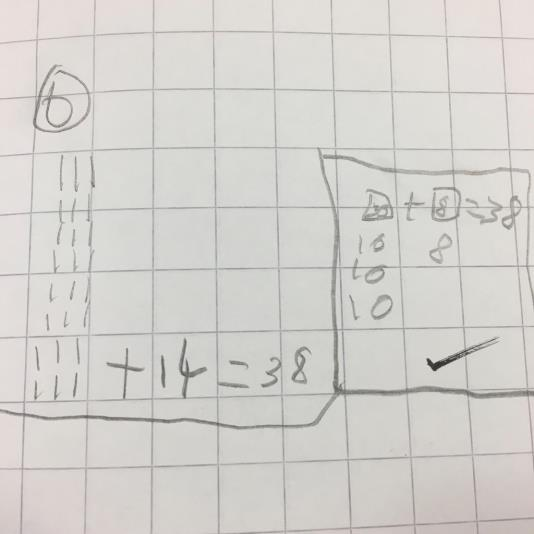 b
||| 
|||
|||
|||
|||
|||
|||
||| + 14 = 38
+ 8 = 38
10 8
10
10